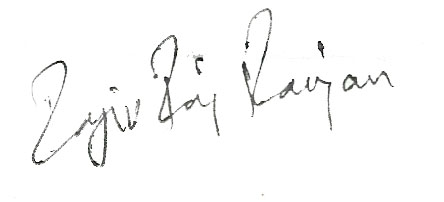 Rajiv Raj Ranjan